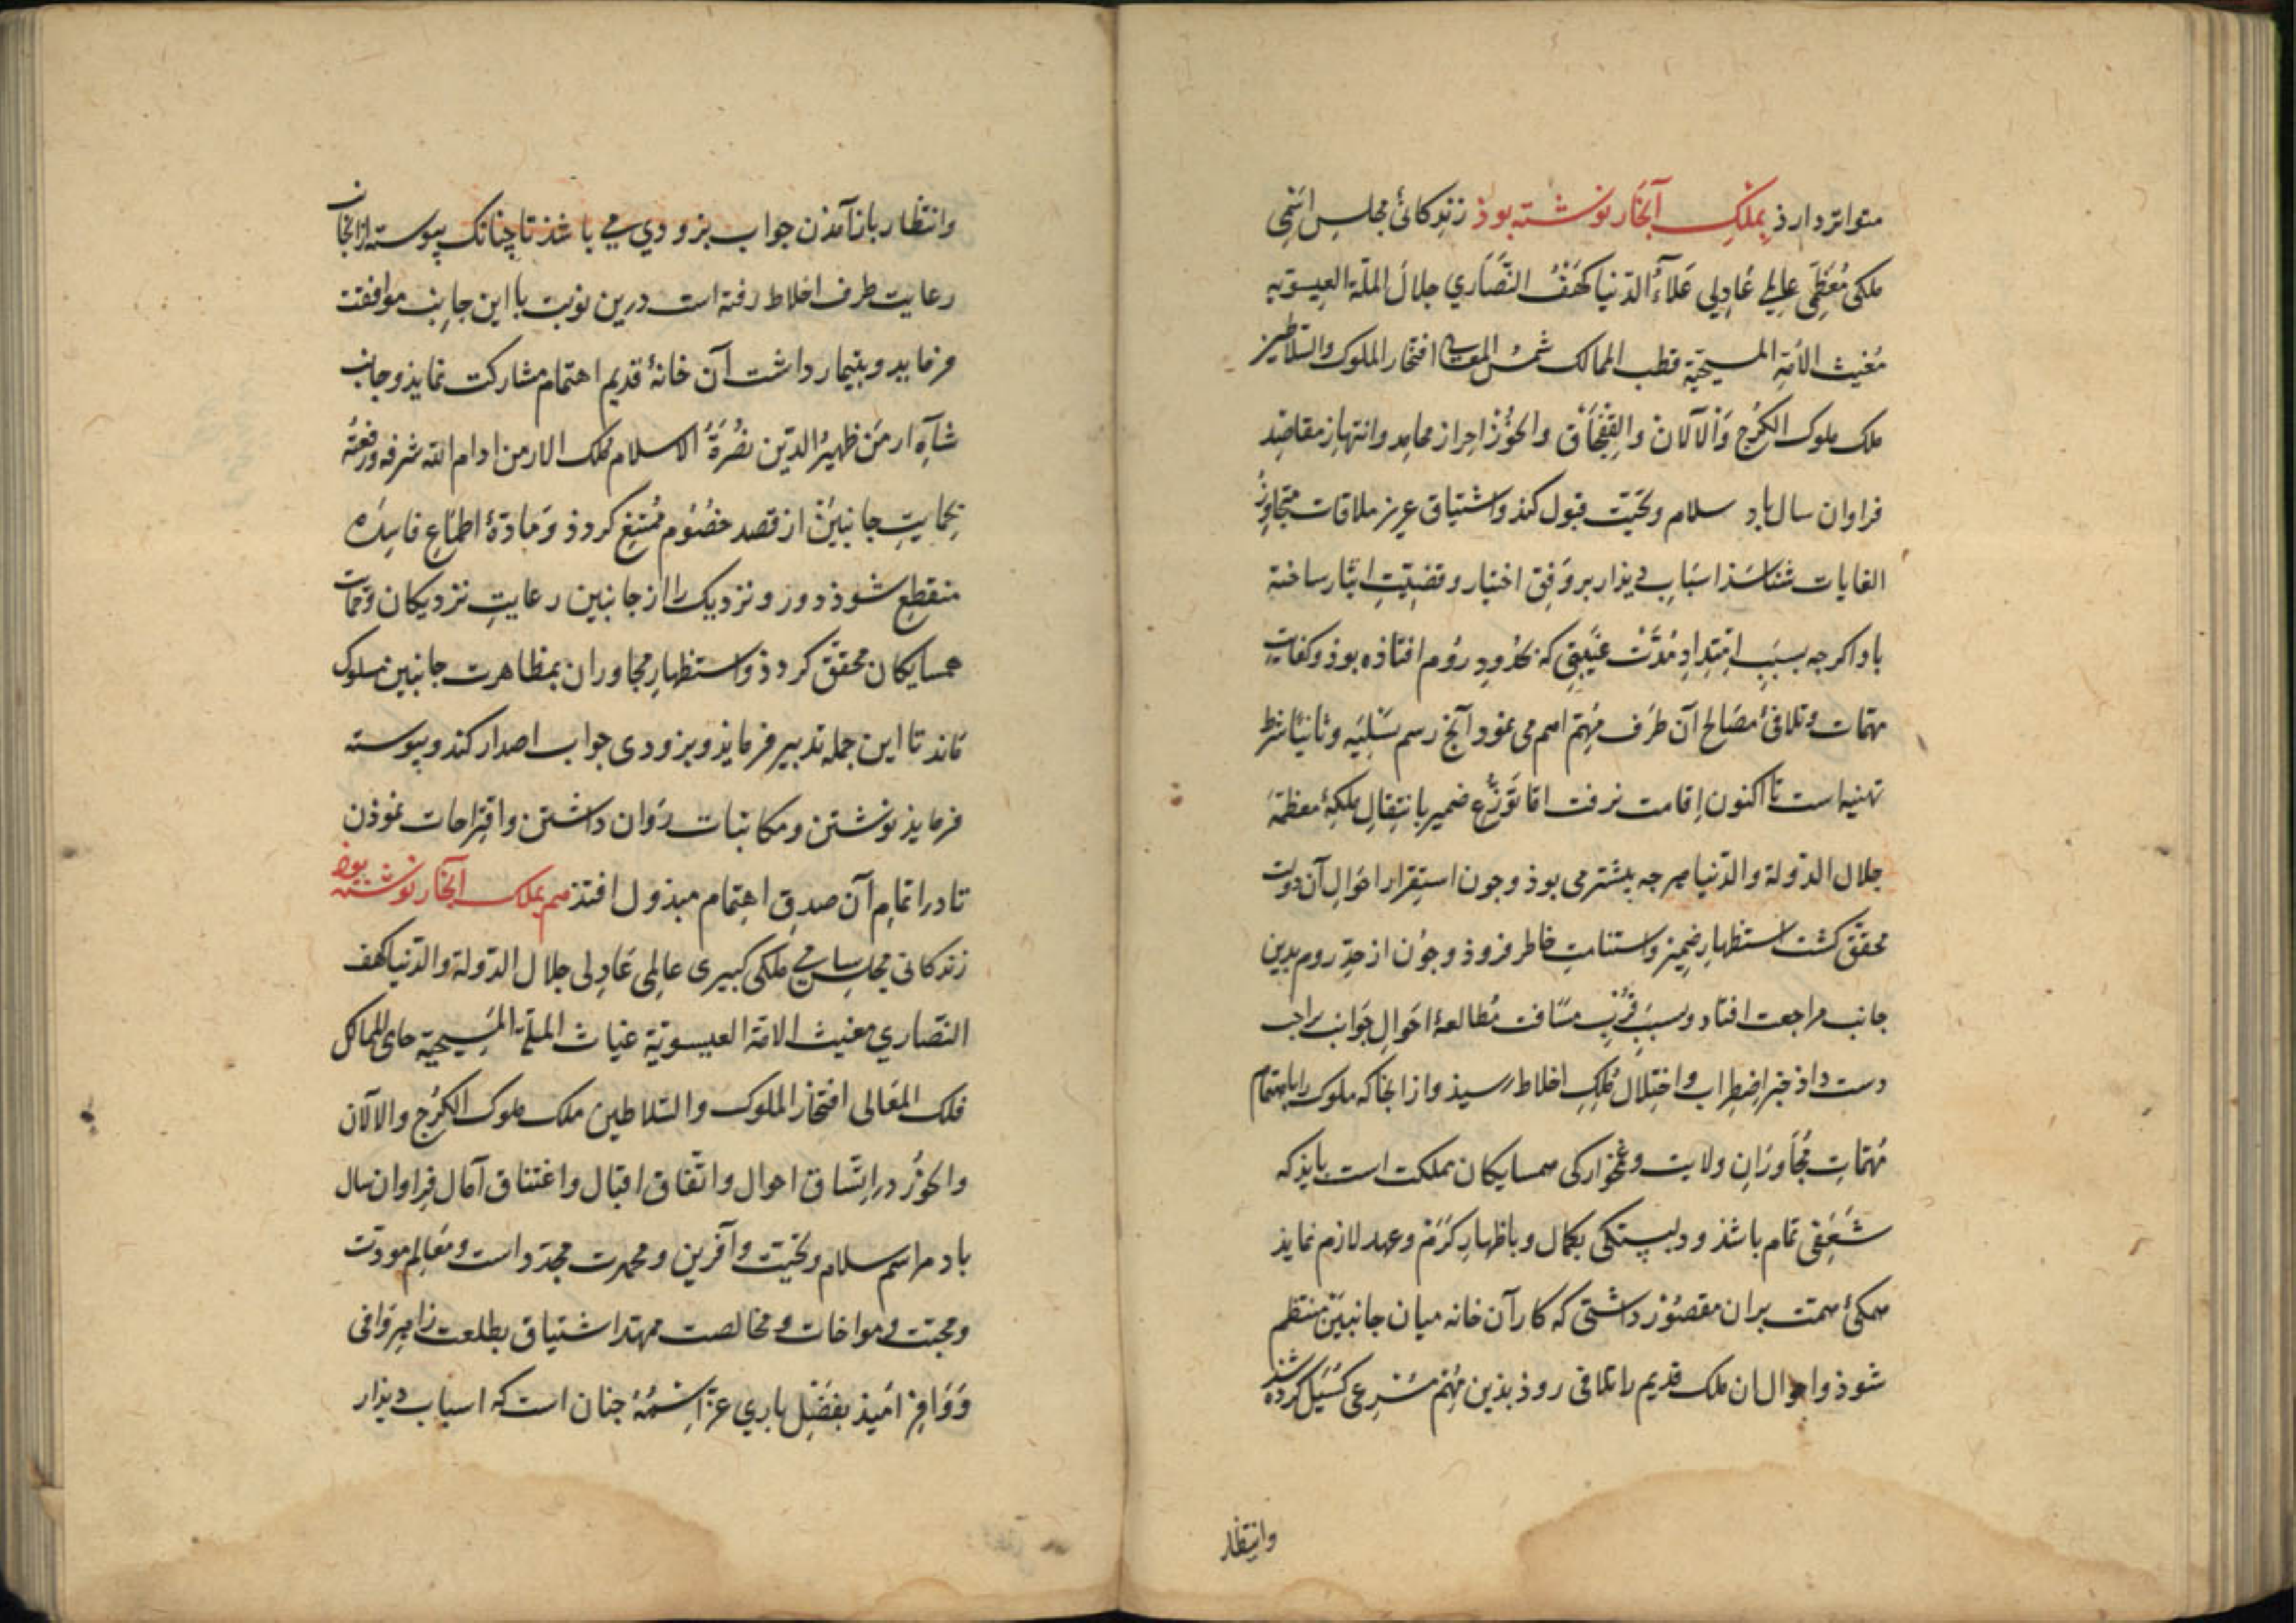 متواتر دارذ بملک ابخاز نوشته بوذ زندکانئ مجلس اسمی
ملکی مُعَظمی عالمی عَادِلی عَلاءُ الدنیا کهفُ النَّصَاری جلال الملّة العیسویه
مُغیث الأمة المسیحیّة قطب الممالک شمسُ المعالی افتخار الملوک والسلاطین
ملک ملوک الکُرج وَالآلان والقِفْجَاق والخزُر احراز محامِد وانتهاز مقاصِد
فراوان سال باد سلام و تحیّت قبول کنذ و اشتیاق عزیز ملاقات متجاوز
الغایات شناسَذ اسبَابِ دیذار بر وَفقِ اختیار و قضیّتِ ایثار ساخته
باد اکرجه بسبَبِ امتِدادِ مُدَّت غیبتِی که بحُدودِ رُوم افتاذه بوذ و کفایت
مهمّات و تلافئ مصَالح آن طرَف مُهِمّ اهم می نمود آنج رسم تسْلیَه و ثانیًا شرط
تهنیه است تا اکنون اِقامت نرفت امّا تَوزُّع ضمیر بانتِقالِ ملکۀ معظمَّۀ
جلال الدّولة والدّنیا هرجه بیشتر می بوذ و جون استِقرار احوَالِ آن دولت
محقّق کشت استظهارِ ضمیر و استنامتِ خاطر فزوذ و جوُن از حدِّ روم بدین
جانب مراجعت افتاد و بسبَبِ قُرْبِ مسَافت مُطالعۀ احوَالِ جَوانب واجب
دست داذ خبر اِضطِراب و اختِلال مُلکِ اخلاط رسیذ و از انجا که ملوک را باهتمام
مُهمّاتِ مُجَاورَانِ ولایت و غمخوارکی همسایکان مملکت است بایذ که
شَعَفی تمام باشذ و دلبستکی بکمال و باظهارِ کرَم و عهد لازم نمایذ
همکئ همّت بران مقصوُر داشتی که کار آن خانه میان جانبیَن منتظم
شوذ و احوال ان ملک قدیم را تلافی روذ بذین مُهِمّ مُسْرِعی کسُیَل کرده شذ
وانتظار
وانتظار باز آمذن جواب بزوودی می باشذ تا چنانک پیوسته از انجانب
رعایت طرف اخلاط رفته است درین نوبت با این جانِب موافقت
فرماید و بتیمار داشت آن خانۀ قدیم اهتمام مشارکت نمایذ و جانب
شآهِ ارمَن ظهیرُ الدّین نصُرَةُ الاسلام مُلک الارمن ادام الله شرفه و رفعتهُ
بحمایتِ جانبینْ از قصد خصُوُم مُمتنع کردذ وَ مادّۀ اطماعِ فاسِدَه
منقطِع شوذ دور و نزدیک را از جانبین رعایتِ نزدیکان و حمایت
همسایکان محقّق کردذ و استظهارِ مجاوران بمظاهرت جانبین مسلوک
مَاند تا این جمله تدبیر فرمایذ و بزودی جواب اصدار کند و پیوسته
فرمایذ نوشتن و مکاتبات رَوان داشتن و اقتِراحات نموُذن
تا در اتمامِ آن صدقِ اهتِمام مبذول افتذ هم بملک ابخاز نوشته بوذ
زندکانی مجلسِ سامی ملکی کبیری عالِمی عَادِلی جلال الدّولة والدّنیا کهف
النّصَاری مغیث الامّة العیسویّة غیاث الملّة المَسیحیّة حامی الممالک
فلک المعَالی افتخار الملوک والسّلاطین ملک ملوک الکرُج والآلان
والخزُر در اتّساق احوال و اتّفاق اقبال و اعتناق آمال فراوان سال
باد مراسم سلام و تحیّت و آفرین و محمدت مجدّد است و معَالِم مودّت
و محبّت و مواخات و مخالصت ممهّد اشتیاق بطلعت زاهِر وَافی
وَوَافِر امَیذ بفضَلِ باری عزّ اسْمُهُ جنان است که اسباب دیذار